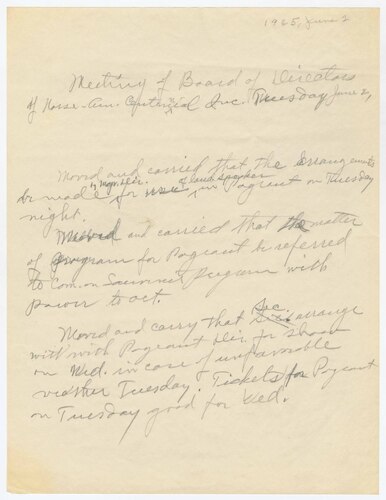 1925, June 2
Meeting of Board of Directors
of Norse-Am. Centennial Inc. Tuesday June 2,
Moved and carried that the arrangements
by Mgn. Dir. of loud speaker
be made for use in Pageant on Tuesday
night.
Moved and carried that the matter
of program for Pageant be referred
to Com. on Souvenir Program with
power to act.
Moved and carry that Sec. arrange
with with Pageant Dir. for show
on Wed. in case of unfavorable
weather Tuesday. Tickets for Pageant
on Tuesday good for Wed.